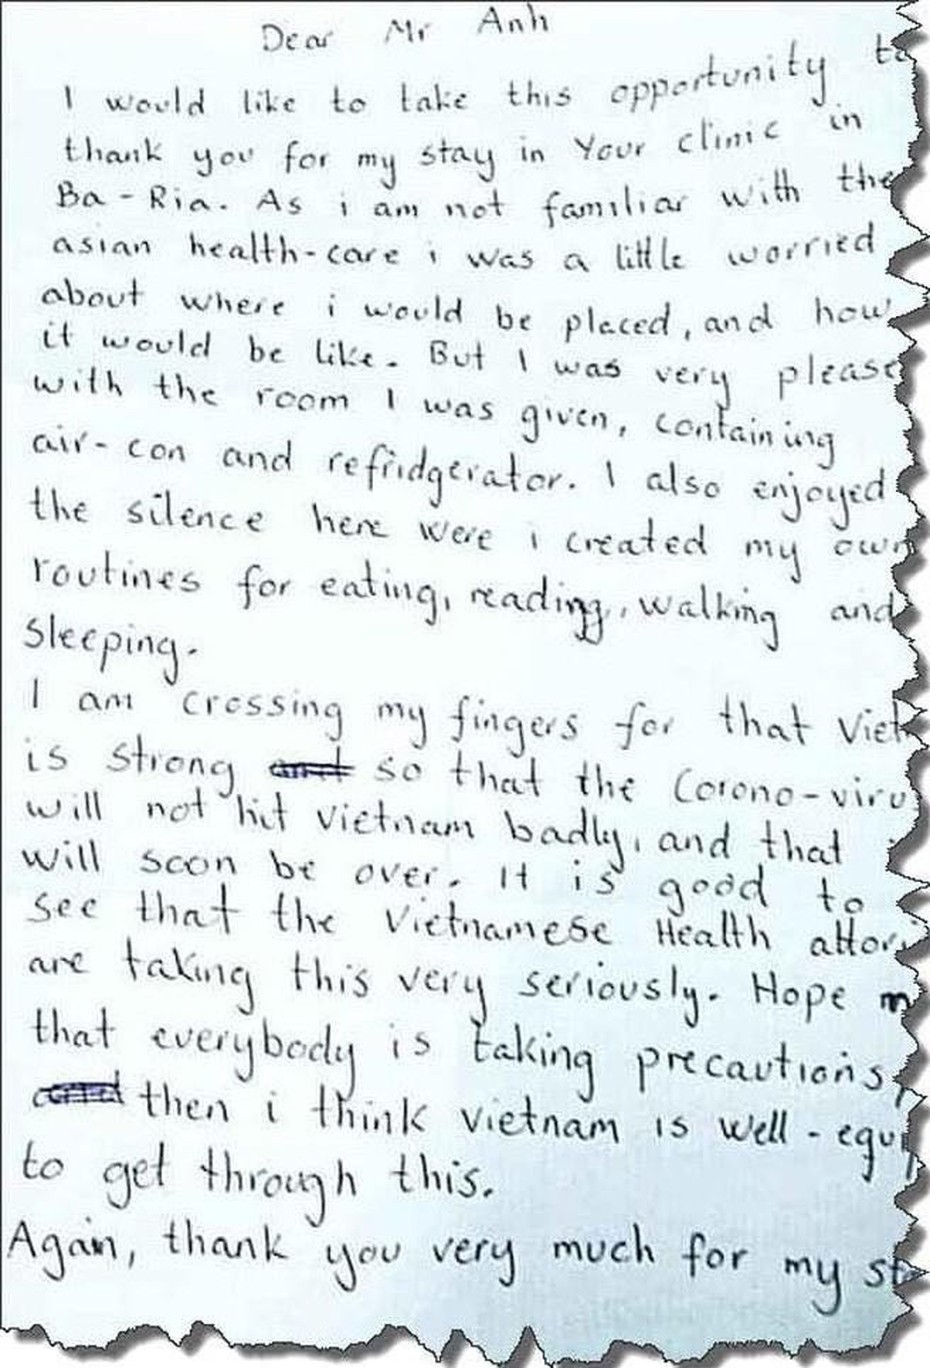 Dear Mr Anh
I would like to take this opportunity to
thank you for my stay in Your clinic in
Ba-Ria. As i am not familiar with the
asian health-care i was a little worried
about where i would be placed, and how
it would be like. But I was very please
with the room I was given, containing
air-con and refridgerator. I also enjoyed
the silence here were i created my own
routines for eating, reading, walking and
Sleeping.
I am crossing my fingers for that Viet
is strong so that the Corono-viru
will not hit vietnam badly, and that
will soon be over. It is good to
see that the Vietnamese Health attor
are taking this very seriously. Hope
that everybody is taking precautions,
then i think vietnam is well-equi
to get through this.
Again, thank you very much for my sta